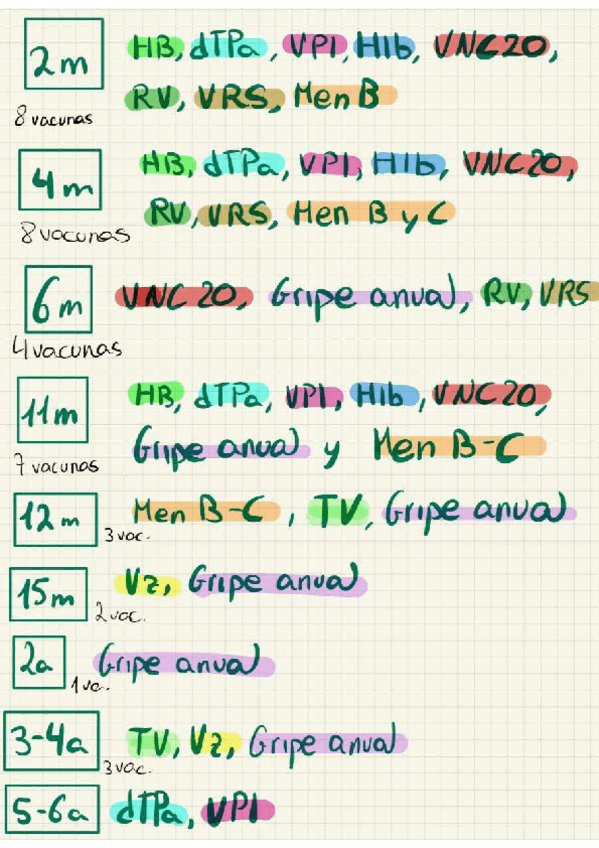 2m HB, dTPa, VPI, HIb, VNC20,
RV, VRS, Men B
8 vacunas
4m HB, dTPa, VPI, HIb, VNC20,
RV, VRS, Men B y C
8 vacunas
6m VNC 20, Gripe anual, RV, VRS
4 vacunas
11m HB, dTPa, VPI, HIb, VNC20,
Gripe anual y Men B-C
7 vacunas
12m Men B-C, TV, Gripe anual
3 vac.
15m Vz, Gripe anual
2 vac.
2a Gripe anual
1 va.
3-4a TV, Vz, Gripe anual
3 vac.
5-6a dTPa, VPI